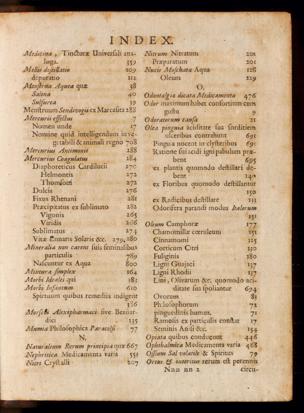 INDEX.
Medicina, Tincturæ Universali ana-
loga. 359
Mellis destillatio 209
depuratio 211
Menstrua Aquea quæ 38
Salina 40
Sulfurea 39
Menstruum Sendivogii ex Marcasita 288
Mercurii effectus 7
Nomen unde 17
Nomine quid intelligendum in ve-
getabili & animali regno 708
Mercurius Antimonii 288
Mercurius Coagulatus 284
Diaphoreticus Cardilucii 270
Helmontii 272
Thomsoni 272
Dulcis 276
Fixus Rhenani 281
Præcipitatus ex sublimato 282
Vigonis 265
Viridis 266
Sublimatus 274
Vitæ Lunaris Solaris &c. 279, 280
Mineralia non carent suis seminalibus
particulis 789
Nascuntur ex Aqua 800
Mixtura simplex 164
Morbi Idealis qui 182
Morbi Insultum 610
Spirituum quibus remediis indigent
186
Morsuli Alexipharmaci sive Bezoar-
dici 135
Mumia Philosophica Paracelsi 77
N.
Naturalium Rerum principia quæ 667
Nephritica Medicamenta varia 551
Nitri Crystalli 207
Nitrum Nitratum 201
Præparatum 201
Nucis Moschatæ Aqua 128
Oleum 129
O.
Odontalgia dicata Medicamenta 476
Odor maximum habet consortium cum
gustu 9
Odoratorum causa 21
Olea pinguia aciditate sua sorditiem
ulceribus contrahunt 691
Pinguia nocent in clysteribus 691
Ratione sui acidi igni pabulum præ-
bent 695
ex plantis quomodo destillari de-
bent 140
ex Floribus quomodo destillantur
150
ex Radicibus destillare 151
Odorifera parandi modus Bolorum
151
Oleum Camphoræ 177
Chamomillæ cœruleum 151
Cinnamomi 125
Corticum Citri 150
Fuliginis 180
Ligni Guajaci 137
Ligni Rhodii 137
Lini, Olivarum &c. quomodo aci-
ditate sua spoliantur 694
Ovorum 81
Philosophorum 72
pinguedinis humanæ 71
Ramosis ex particulis constat 17
Seminis Anisi &c. 154
Opiata quibus conducunt 446
Ophthalmica Medicamenta varia 468
Ossium Sal volatile & Spiritus 79
Ortus & interitus rerum est perennis
Nnn nn 2 circu-